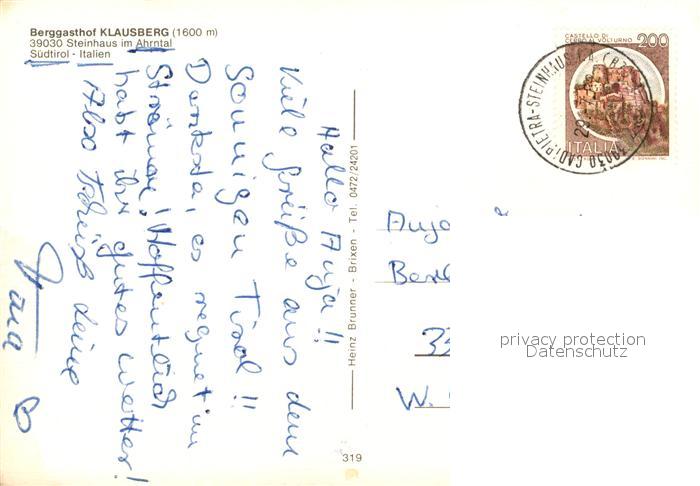 Berggasthof KLAUSBERG (1600 m)
39030 Steinhaus im Ahrntal
Südtirol - Italien
Hallo Anja!!
Viele Grüße aus dem
Sonnigen Tirol!!
Denkste, es regnet in
Strömen! Hoffentlich
habt ihr gutes wetter!
Also Tschüß deine
Heinz Brunner - Brixen - Tel. 0472/24201
319
CASTELLO DI
CERRO AL VOLTURNO 200
ITALIA
39030 CADIPIETRA-STEINHAUS
Anja
33
W.
privacy protection
Datenschutz